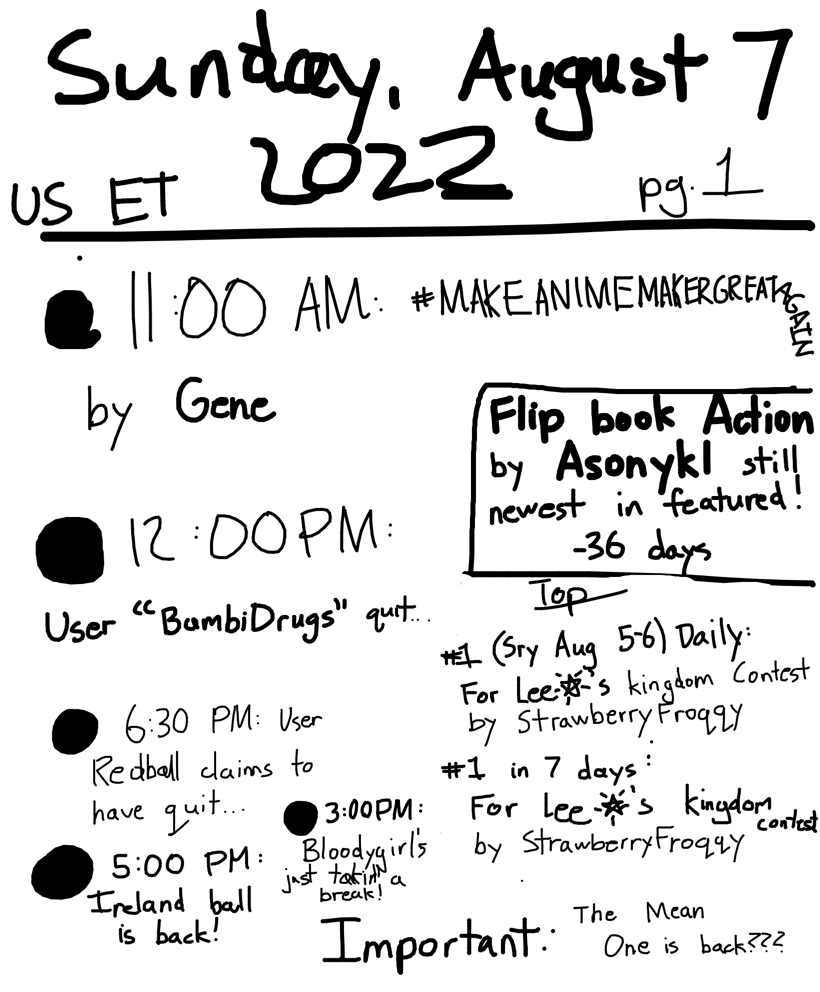 Sunday, August 7
2022
US ET
pg. 1
11:00 AM: #MAKEANIMEMAKERGREATAGAIN
by Gene
Flip book Action
by Asonykl still
newest in featured!
-36 days
12:00PM:
User "BambiDrugs" quit...
Top
#1 (Sry Aug 5-6) Daily:
For Lee-☆-'s kingdom Contest
by StrawberryFroggy
#1 in 7 days:
For Lee-☆'s kingdom
contest
by StrawberryFroggy
6:30 PM: User
Redball claims to
have quit...
3:00PM:
Bloodygirl's
just takin' a
break!
5:00 PM:
Ireland ball
is back!
Important:
The Mean
One is back???